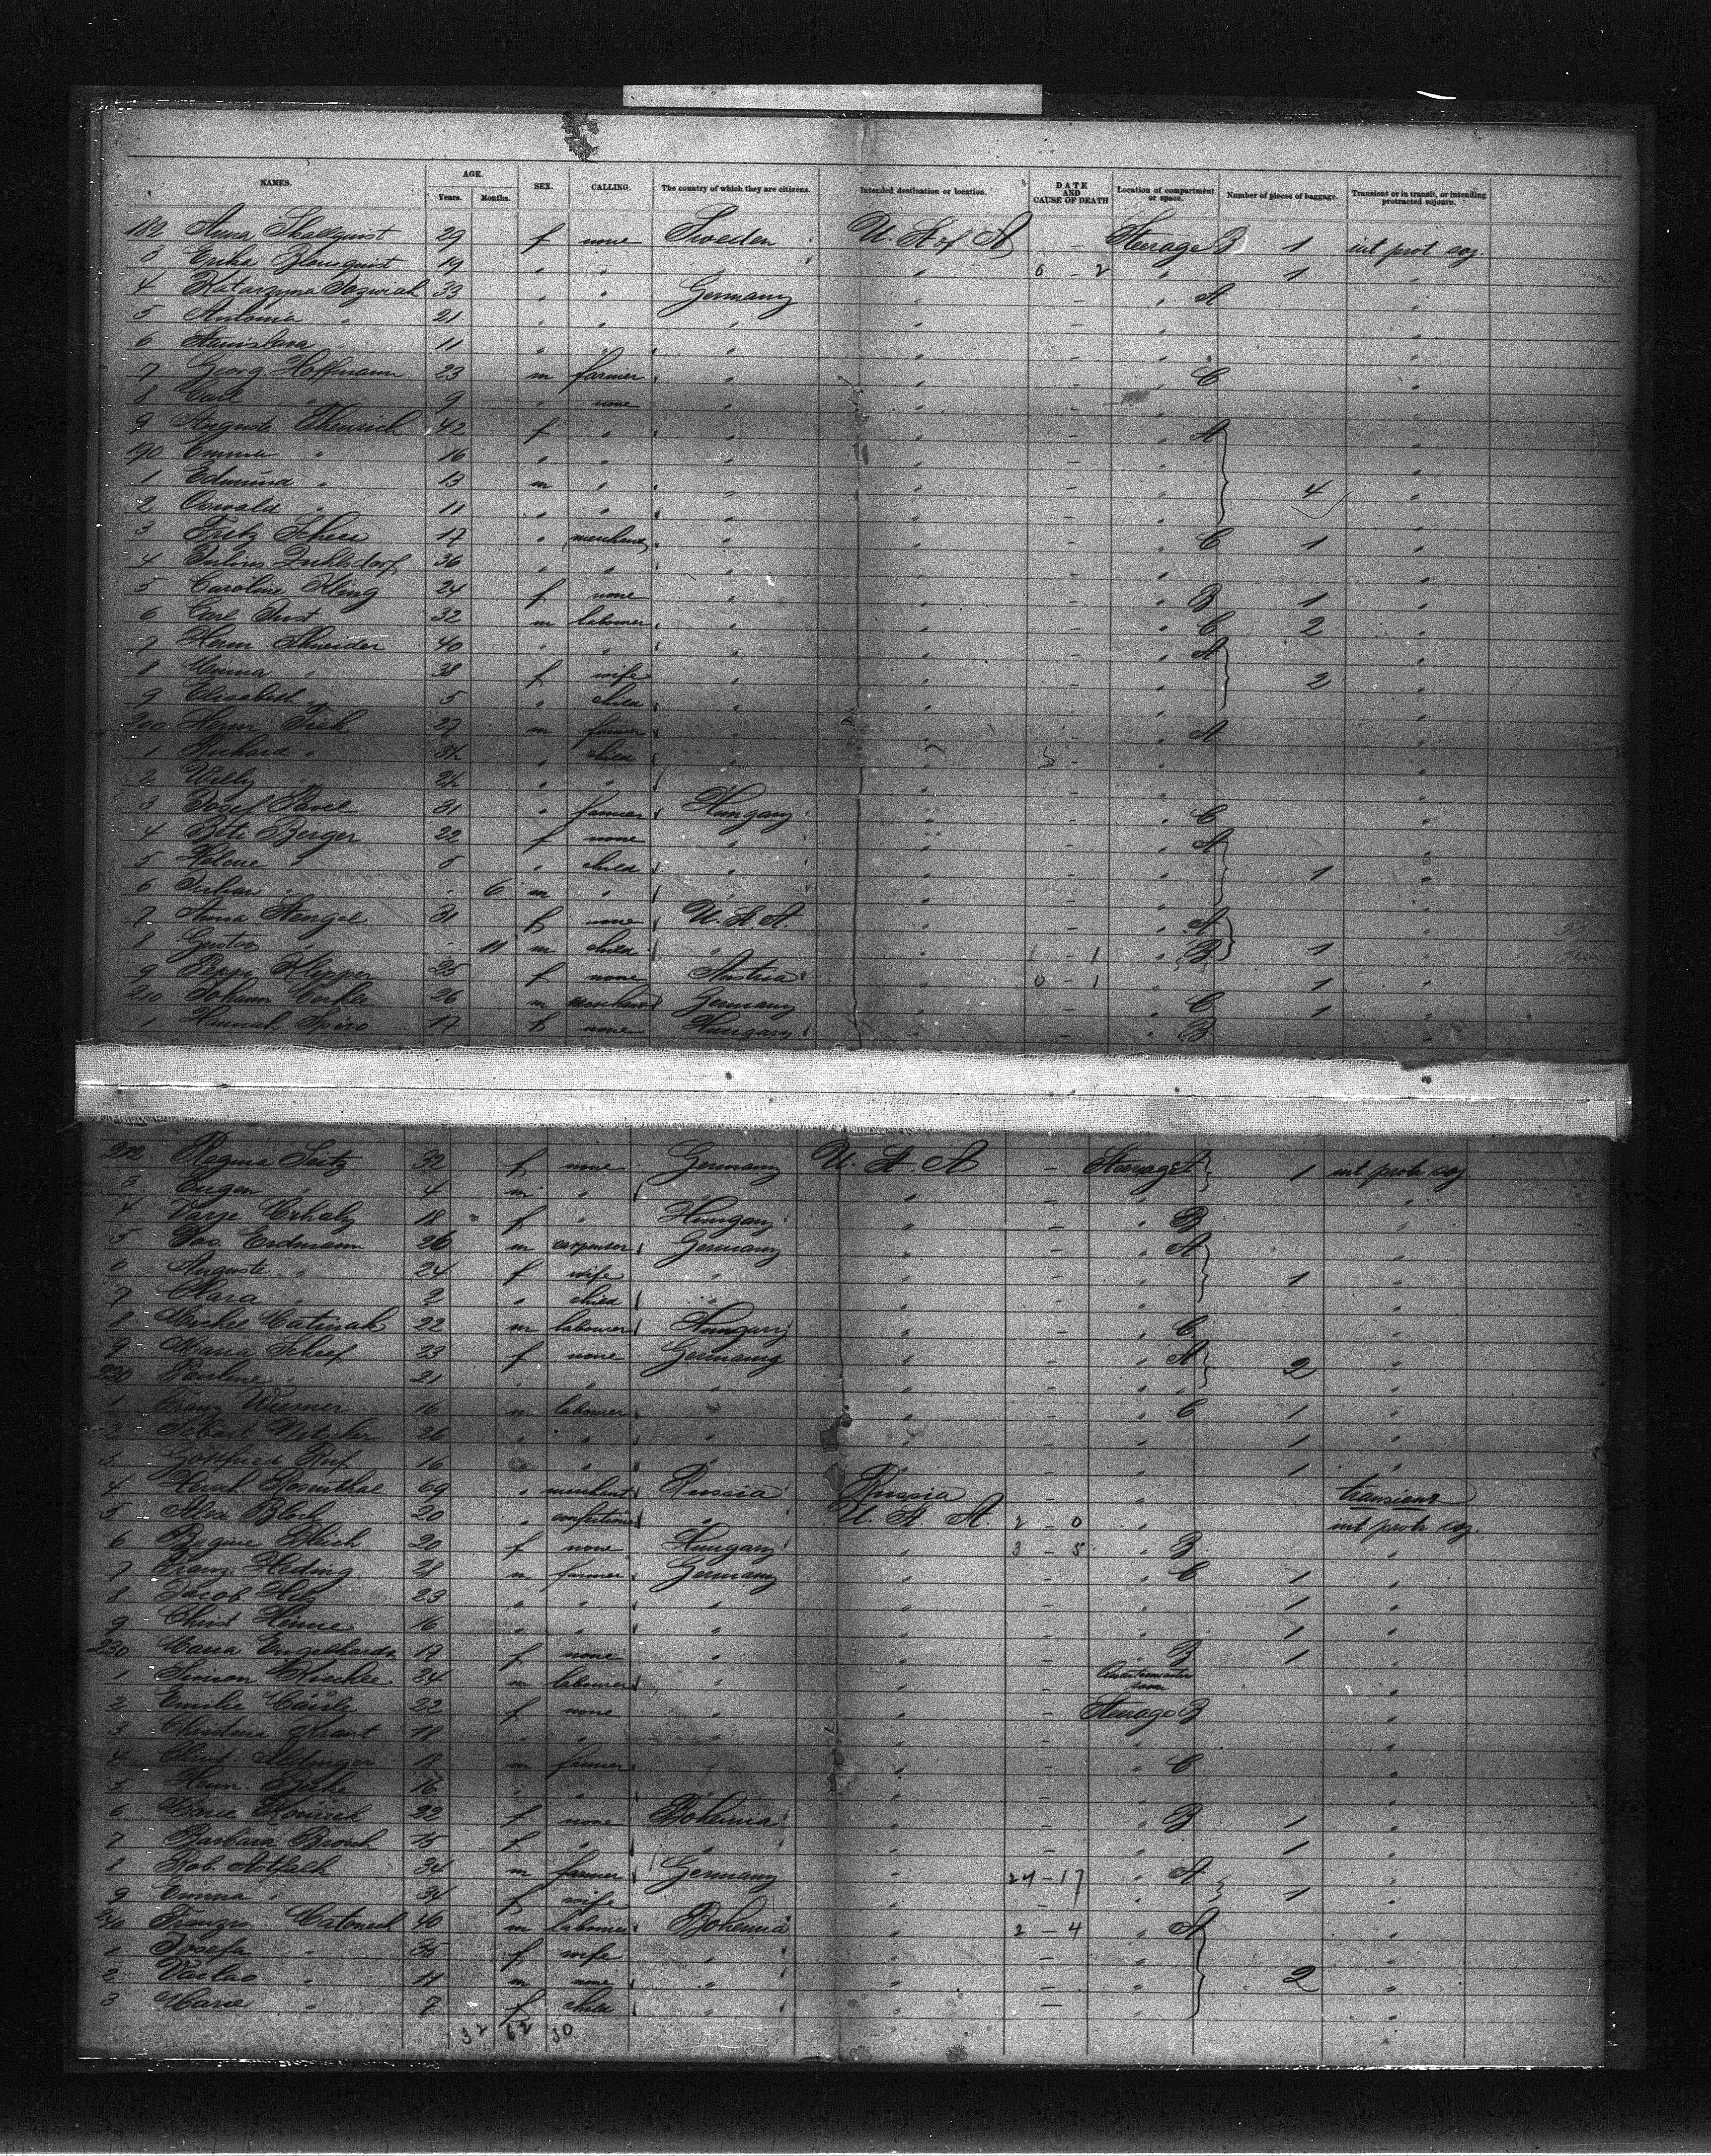 NAMES. AGE. Years. Months. SEX. CALLING. The country of which they are citizens. Intended destination or location. DATE AND CAUSE OF DEATH Location of compartment or space. Number of pieces of baggage. Transient or in transit, or intending protracted sojourn.
182 Anna Skallquist 29 f none Sweden U. St of A - Steerage B 1 int prot soj.
3 Erika Blomquist 19 " " " " 0 - 2 " 1 "
4 Katarzyna 33 " " Germany " - " A "
5 Antonia " 21 " " " " - " "
6 Stanislava 11 " " " " - " "
7 Georg Hoffmann 23 m farmer " " - " C "
8 Carl " 9 " none " " - " "
9 Auguste Theurich 42 f " " " - " A "
190 Emma " 16 " " " " - " "
1 Edmund " 13 m " " " - " 4 "
2 Oswald " 11 " " " " - " "
3 Fritz Scheer 17 " merchant " " - " C 1 "
4 Julius Zuhlsdorf 36 " " " " - " "
5 Caroline Kling 24 f none " " - " B 1 "
6 Carl Just 32 m labourer " " - " C 2 "
7 Herm. Schneider 40 " " " " - " A "
8 Emma " 38 f wife " " - " 2 "
9 Elisabeth " 5 " child " " - " "
200 Herm 27 m farmer " " - " A "
1 Richard " " child " " - " "
2 Willy " " " " " - " "
3 Josef Pavel 31 " farmer Hungary " - " C "
4 Beti Berger 22 f none " " - " A "
5 Helene " 5 " child " " - " 1 "
6 Julius " - 6 m " " " - " "
7 Anna Stengel 31 f none U. St. A. " - " A "
8 Gustav " - 11 m child " " 1 - 1 " B 1 "
9 Peppi Klipper 25 f none Austria " 0 - 1 " 1 "
210 Johann 26 m merchant Germany " - " C 1 "
1 Hannah Spiro 17 f none Hungary " - " B "
212 Regina Seitz 32 f none Germany U. St. A - Steerage A 1 int protr soj.
3 Eugen " 4 m " " " - " "
4 18 f " Hungary " - " B "
5 Jos. Erdmann 26 m carpenter Germany " - " A "
6 Auguste " 24 f wife " " - " 1 "
7 Clara " 2 " child " " - " "
8 Michel Matisak 22 m labourer Hungary " - " C "
9 Maria Scheef 23 f none Germany " - " A 2 "
220 Pauline " 21 " " " " - " "
1 Franz Wiesner 16 m labourer " " - " C 1 "
2 Sebast Nitscher 26 " " " " - " 1 "
3 Gottfried Ruf 16 " " " " - " 1 "
4 Hersch. Rosenthal 69 " merchant Russia Russia - " transient
5 Alex Bloch 20 " confectioner " U. St. A. 2 - 0 " int protr soj.
6 Regine Bleich 20 f none Hungary " 3 - 5 " B "
7 Franz Heding 28 m farmer Germany " - " C 1 "
8 Jacob 23 " " " " - " 1 "
9 Christ Henne 16 " " " " - " 1 "
230 Maria Engelhardt 17 f none " " - " B 1 "
1 Simon 24 m labourer " " - Quartermaster room "
2 Emilie 22 f none " " - Steerage B "
3 Christina 18 " " " " - " "
4 Christ. Aldinger 18 m farmer " " - " C "
5 Herm. 16 " " " " - " "
6 Marie 22 f none Bohemia " - " B 1 "
7 Barbara Brosch 15 f " " " - " 1 "
8 Rob. Astfalk 34 m farmer Germany " 24 - 17 " A "
9 Emma " 34 f wife " " - " 1 "
240 40 m labourer Bohemia " 2 - 4 " A "
1 Josefa " 35 f wife " " - " "
2 Vaclav " 11 m none " " - " 2 "
3 Marie " 7 f child " " - " "
32 62 30